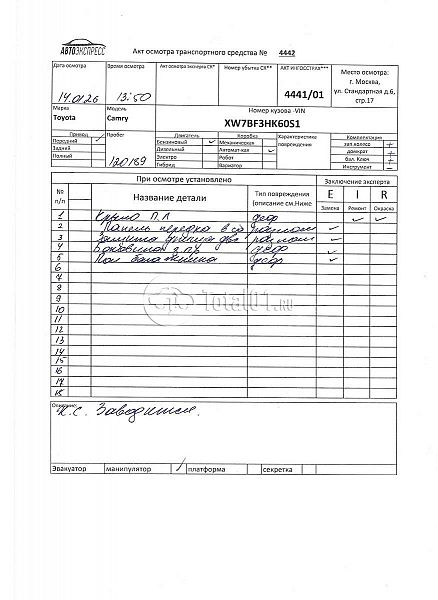 АВТОЭКСПРЕСС
Акт осмотра транспортного средства № 4442
Дата осмотра Время осмотра Акт осмотра эксперта СК* Номер убытка СК** АКТ ИНГОССТРАХ***
Место осмотра:
г. Москва,
ул. Стандартная д.6,
стр.17
14.01.26 13:50 4441/01
Марка Модель Номер кузова -VIN
Toyota Camry XW7BF3HK60S1
Привод Пробег Двигатель Коробка Характеристики повреждения Комплектация
Передний Бензиновый Механическая зап.колесо +
Задний Дизельный Автомат-кая домкрат +
Полный Электро Робот бал. Ключ +
Гибрид Вариатор Инструмент -
120189
При осмотре установлено Заключение эксперта
№ п/п Название детали Тип повреждения (описание см.Ниже E I R
Замена Ремонт Окраска
1 Крыло П Л деф
2 Панель передка в сб разлом
3 разлом
4 деф
5 Пол багажника деф
6
7
8
9
10
11
12
13
14
15
16
17
18
Total01.ru
Описание:
Т.С. Заводится.
Эвакуатор манипулятор / платформа секретка